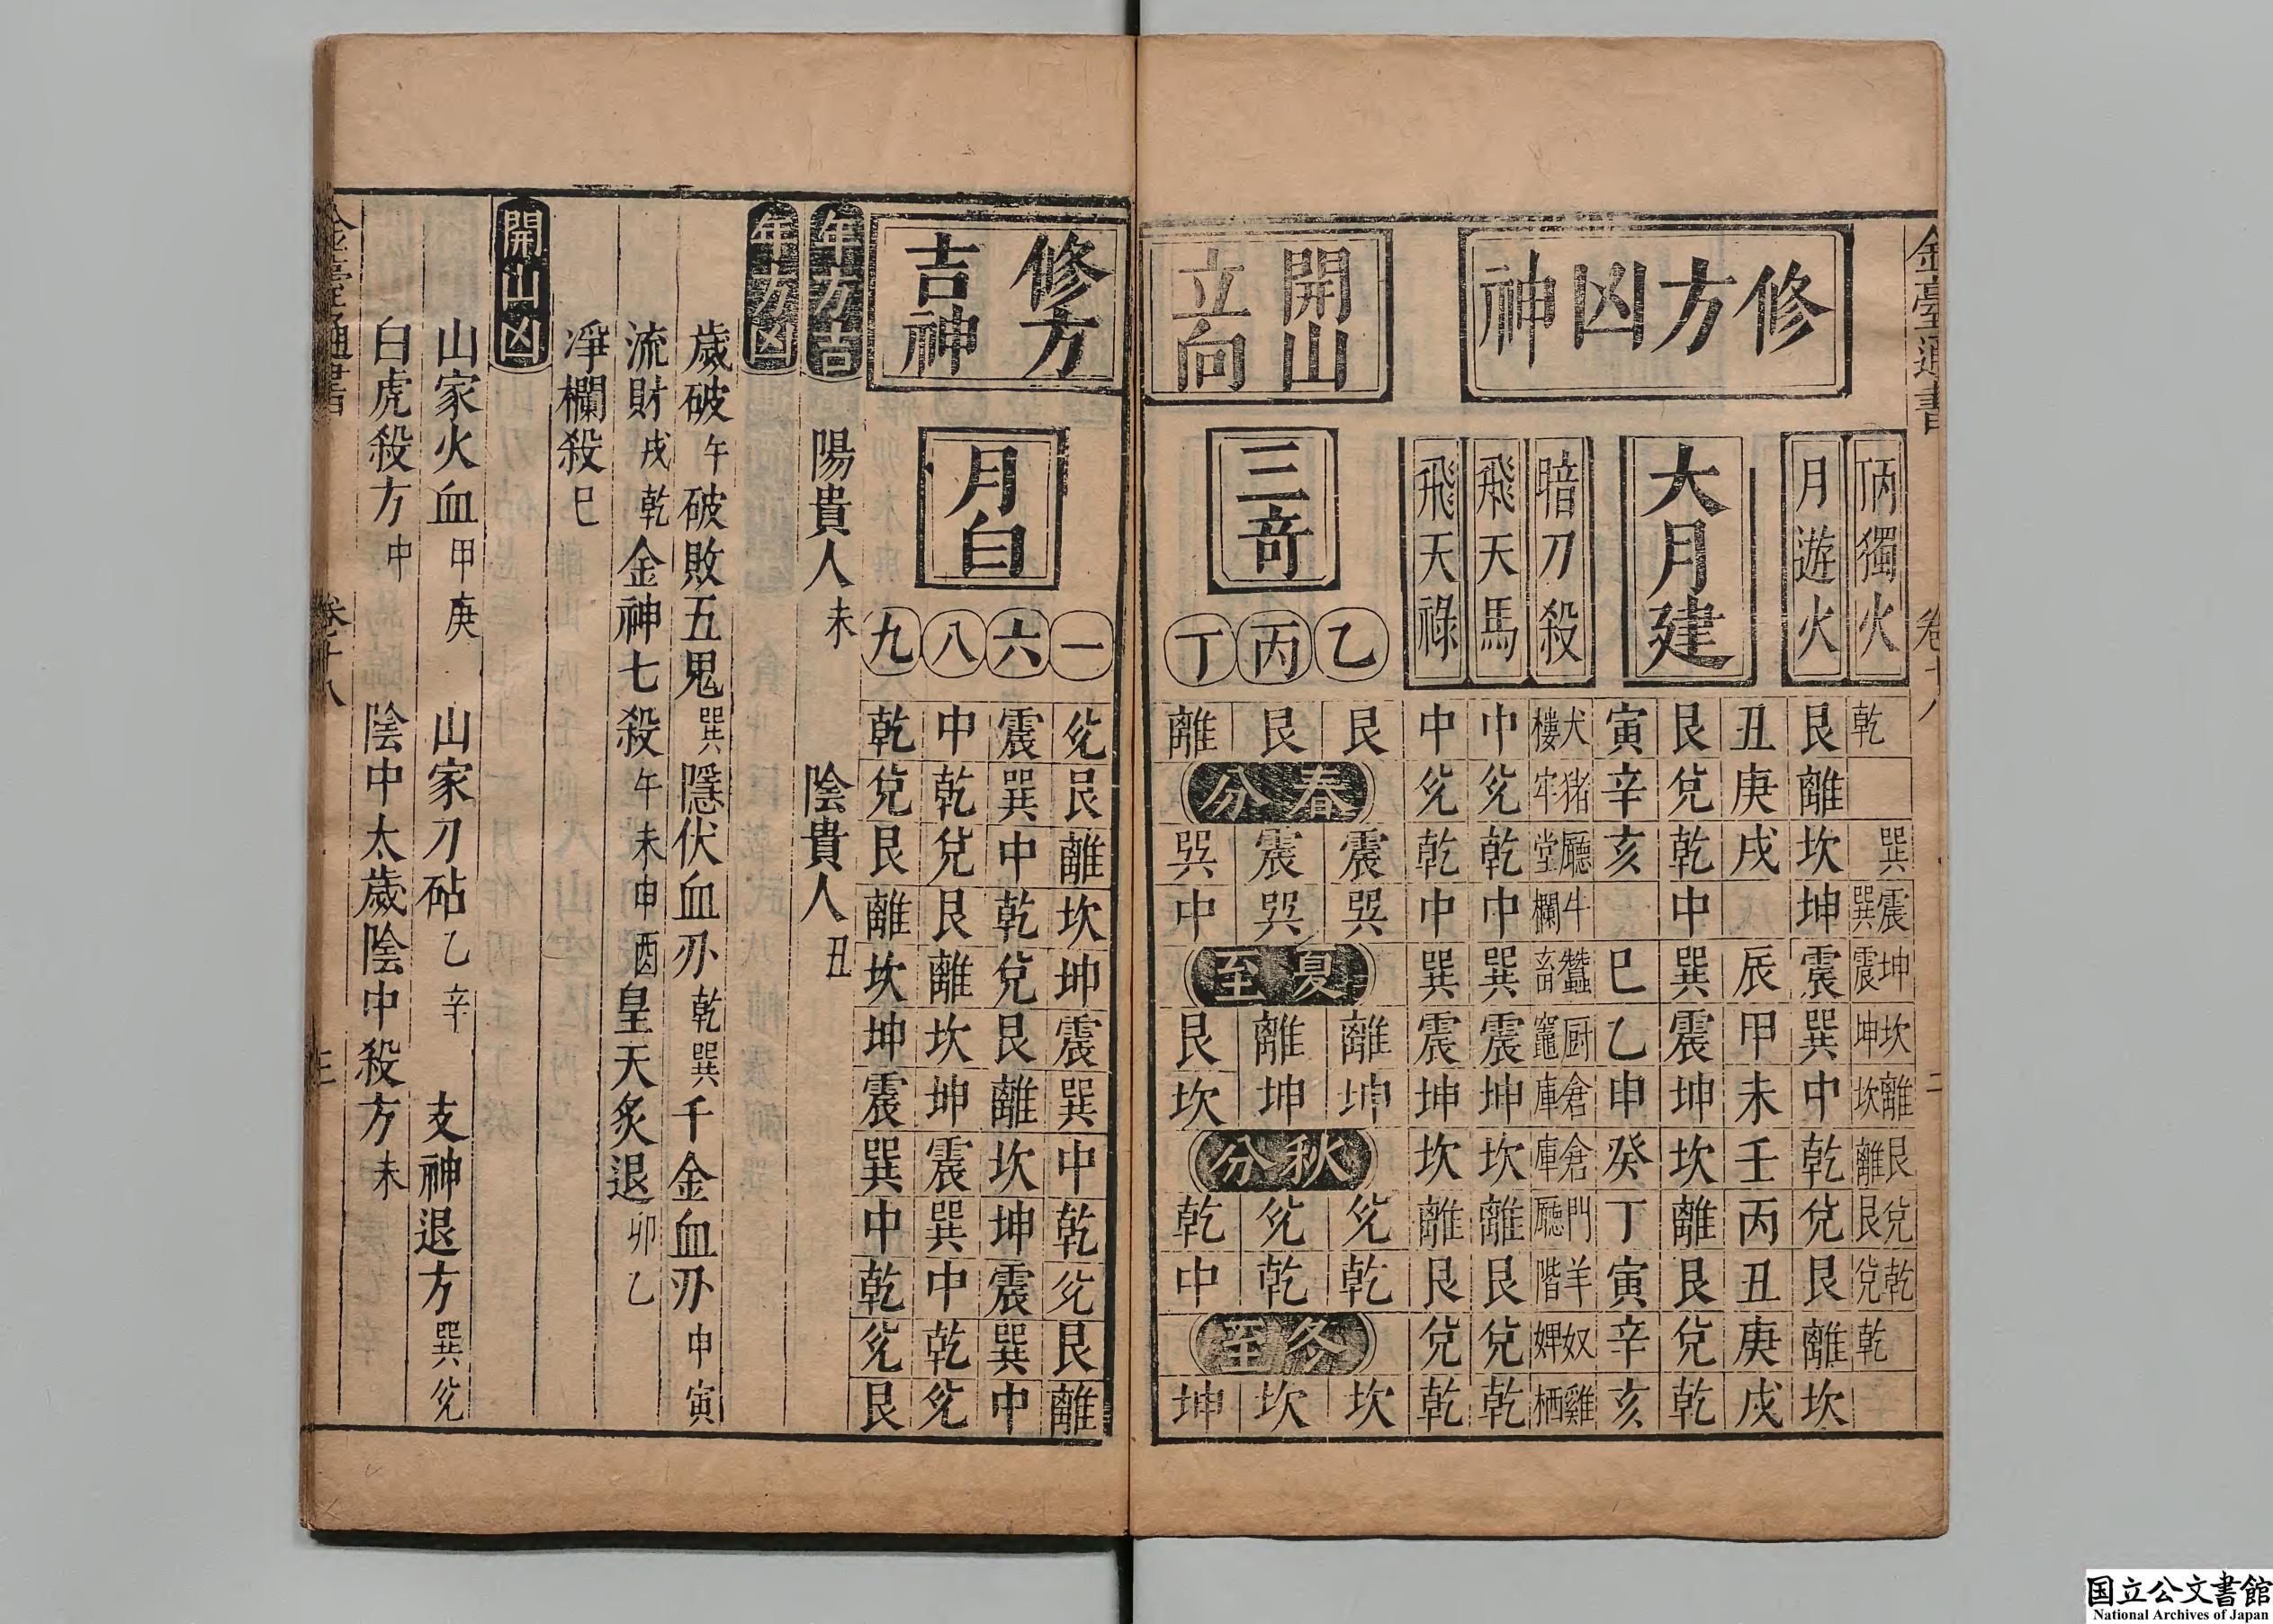 金臺通書 卷十八 二
修方凶神
丙獨火 乾 巽 震巽 坤震 坎坤 離坎 艮離 兌艮 乾兌 乾
月遊火 艮 離 坎 坤 震 巽 中 乾 兌 艮 離 坎
大月建
丑 庚 戌 辰 甲 未 壬 丙 丑 庚 戌
艮 兌 乾 中 巽 震 坤 坎 離 艮 兌 乾
寅 辛 亥 巳 乙 申 癸 丁 寅 辛 亥
暗刀殺 犬樓 猪牢 廳堂 牛欄 蠶畜 厨竈 倉庫 倉庫 門廳 羊階 奴婢 雞栖
飛天馬 中 兌 乾 中 巽 震 坤 坎 離 艮 兌 乾
飛天祿 中 兌 乾 中 巽 震 坤 坎 離 艮 兌 乾
開山
立向
三竒
春分 夏至 秋分 冬至
乙 艮 震 巽 離 坤 兌 乾 坎
丙 艮 震 巽 離 坤 兌 乾 坎
丁 離 巽 中 艮 坎 乾 中 坤
修方
吉神
月白
一 兌 艮 離 坎 坤 震 巽 中 乾 兌 艮 離
六 震 巽 中 乾 兌 艮 離 坎 坤 震 巽 中
八 中 乾 兌 艮 離 坎 坤 震 巽 中 乾 兌
九 乾 兌 艮 離 坎 坤 震 巽 中 乾 兌 艮
年方吉
陽貴人 未 陰貴人 丑
年方凶
歲破 午 破敗五鬼 巽 隱伏血刃 乾巽 千金血刃 申寅
流財 戌乾 金神七殺 午未申酉 皇天炙退 卯乙
淨欄殺 巳
開山凶
山家火血 甲庚 山家刀砧 乙辛 支神退方 巽兌
白虎殺方 中 陰中太歲陰中殺方 未
金臺通書 卷十八 三